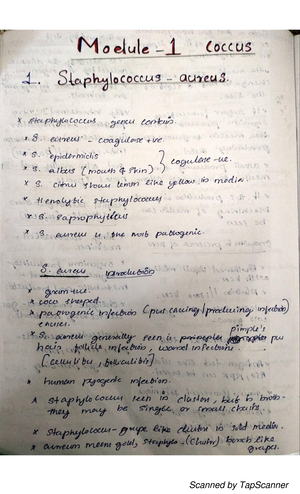 Module - 1 coccus
1. Staphylococcus - aureus.
* staphylococcus genus contain.
* S. aureus - coagulase +ve.
* S. epidermidis
* S. albus (mouth & skin) } coagulase -ve.
* S. citrus shows lemon like yellow in media.
* Hemolytic staphylococcus
* S. saprophyticus
* S. aureus is the most pathogenic.
S. aureus introduction
* gram +ve.
* coco shaped.
* pathogenic infection (pus causing/producing infection)
S. aureus generally seen in pimple's
hair follicle infection, wound infections
[cellulitis, folliculitis]
* human pyogenic infection.
* Staphylococcus seen in clusters, but in broth
they may be single, or small chains.
* Staphylococcus - grape like cluster in solid media.
* aureum means gold, staphylo - (cluster) bunch like
grapes.
Scanned by TapScanner